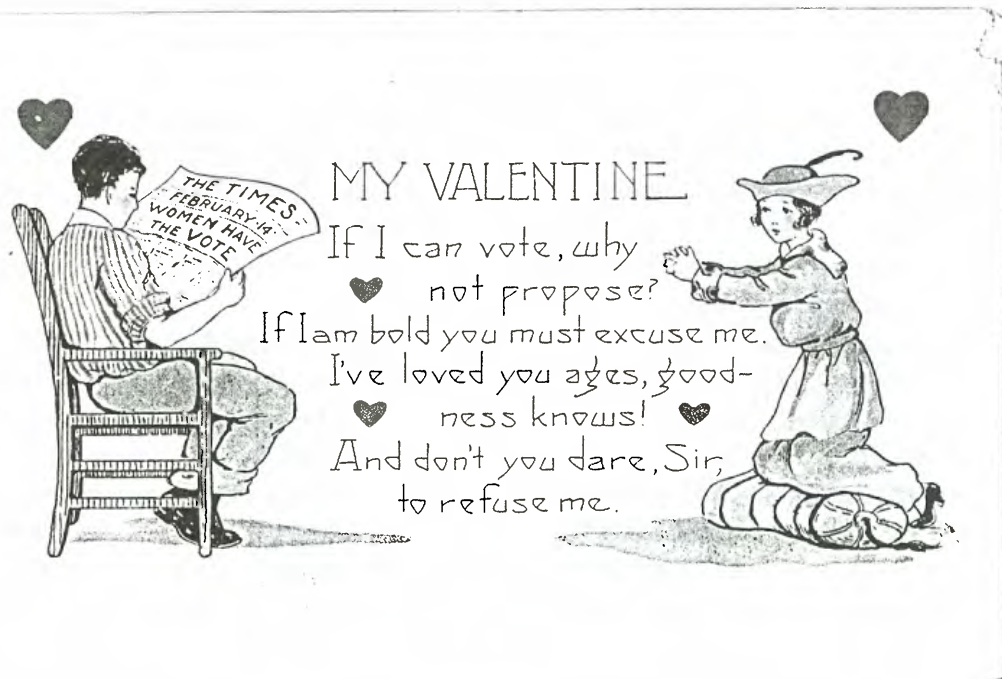 THE TIMES-
FEBRUARY·14·
WOMEN HAVE
THE VOTE
MY VALENTINE
If I can vote, why
not propose?
If I am bold you must excuse me.
I've loved you ages, good-
ness knows!
And don't you dare, Sir,
to refuse me.